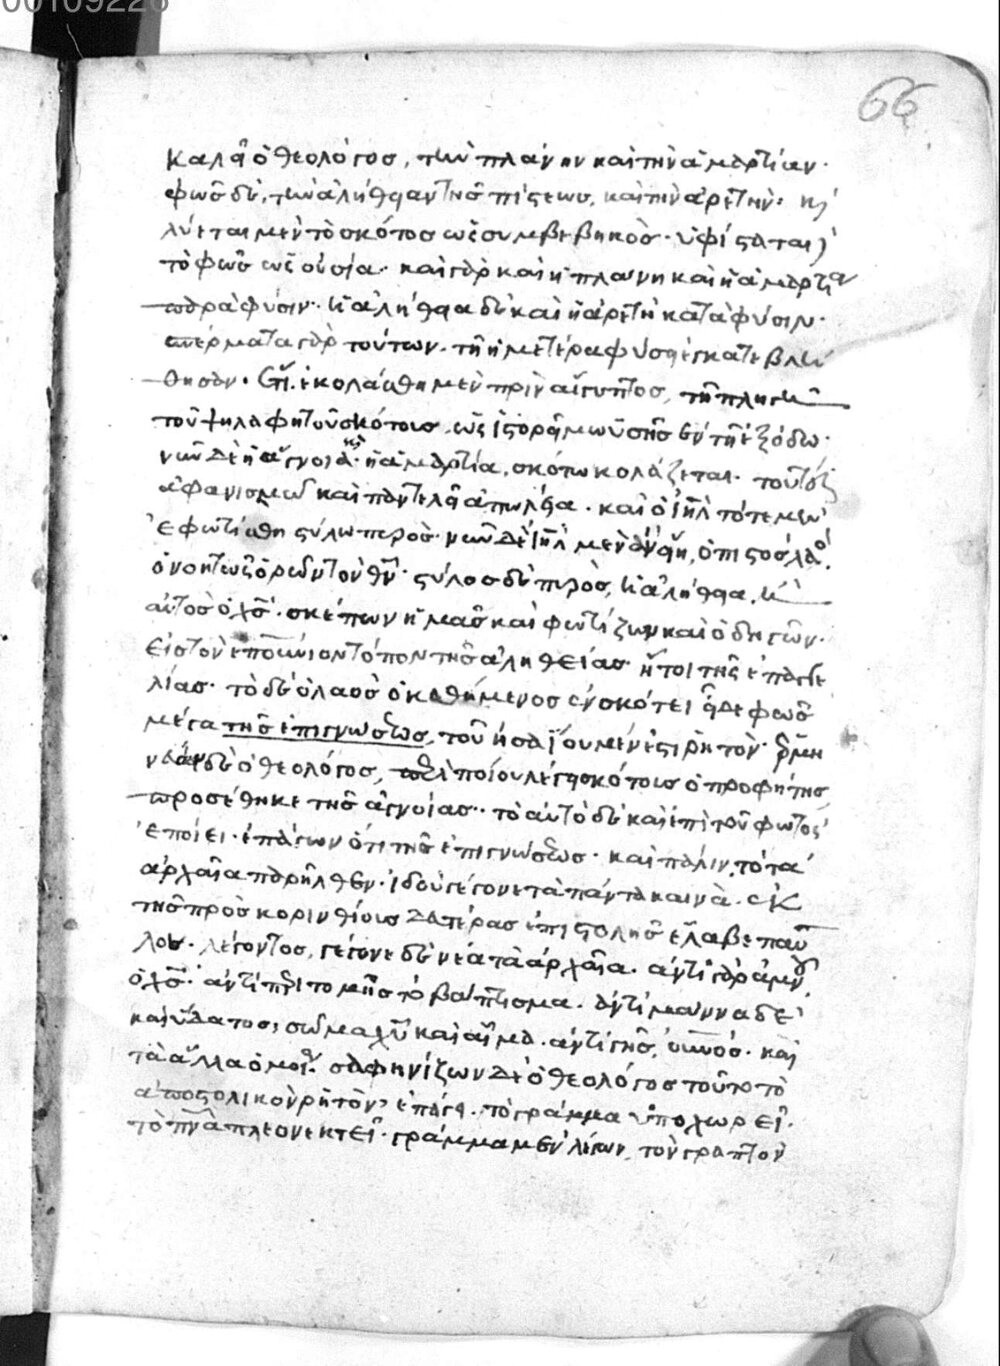 00109226
66
καλεῖ ὁ θεολόγος, τὴν πλάνην καὶ τὴν ἁμαρτίαν·
φῶς δὲ, τὴν ἀλήθειαν τῆς πίστεως, καὶ τὴν ἀρετήν· κ
λύεται μὲν τὸ σκότος ὡς συμβεβηκὸς· ὑφίσταται
τὸ φῶς ὡς οὐσία· καὶ γὰρ καὶ ἡ πλάνη καὶ ἡ ἁμαρτία
παρὰ φύσιν· ἡ ἀλήθεια δὲ καὶ ἡ ἀρετὴ κατὰ φύσιν·
σπέρματα γὰρ τούτων τῇ ἡμετέρα φύσει ἐγκατεβλή
θησαν· ἐκολάσθη μὲν πρὶν αἴγυπτος, τῇ πληγῇ
τοῦ ψηλαφητοῦ σκότους, ὡς ἱστορεῖ μωϋσῆς ἐν τῇ ἐξόδω·
νῦν δὲ ἡ ἄγνοια κ ἡ ἁμαρτία, σκότω κολάζεται· τουτέστι
ἀφανισμῶ καὶ παντελεῖ ἀπωλεία· καὶ ὁ ἰηλ τότε μὲν
ἐφωτίσθη στύλω πυρὸς· νῦν δὲ ἰηλ μὲν ὁ πιστὸς λαὸς
ὁ νοητῶς ὁρῶν τὸν θν· στύλος δὲ πυρὸς, ἡ ἀλήθεια, ἢ
αὐτὸς ὁ χς· σκέπων ἡμᾶς καὶ φωτίζων καὶ ὁδηγῶν·
εἰς τὸν ἐπουνιον τόπον τῆς ἀληθείας· ἤτοι τῆς ἐπαγγε
λίας· τὸ δὲ ὁ λαὸς ὁ καθήμενος ἐν σκότει εἶδε φῶς
μέγα τῆς ἐπιγνώσεως, τοῦ ἡσαΐου μέν ἐστι ῥητὸν·
δὲ ὁ θεολόγος, ποίου λέγει σκότους ὁ προφήτης
προσέθηκε τῆς ἀγνοίας· τὸ αὐτὸ δὲ καὶ ἐπὶ τοῦ φωτὸς
ἐποίει· ἐπάγων ὅτι τῆς ἐπιγνώσεως· καὶ πάλιν, τὸ τὰ
ἀρχαῖα παρῆλθεν· ἰδοὺ γέγονε τὰ πάντα καινὰ· ἐκ
τῆς πρὸς κορινθίους δευτέρας ἐπιστολῆς ἔλαβε παύ
λου· λέγοντος, γέγονε δὲ νέα τὰ ἀρχαῖα· ἀντὶ γὰρ ἀμνοῦ
ὁ χς· ἀντὶ περιτομῆς τὸ βάπτισμα· ἀντὶ μάννα δὲ
καὶ ὕδατος, σῶμα χυ καὶ αἷμα· ἀντὶ γῆς, οὐνός· καὶ
τὰ ἄλλα ὁμοί· σαφηνίζων δὲ ὁ θεολόγος τοῦτο τὸ
ἀποστολικὸν ῥητὸν, ἐπάγει· τὸ γράμμα ὑποχωρεῖ·
τὸ πνα πλεονεκτεῖ· γράμμα μὲν λέγων, τὸν γραπτὸν